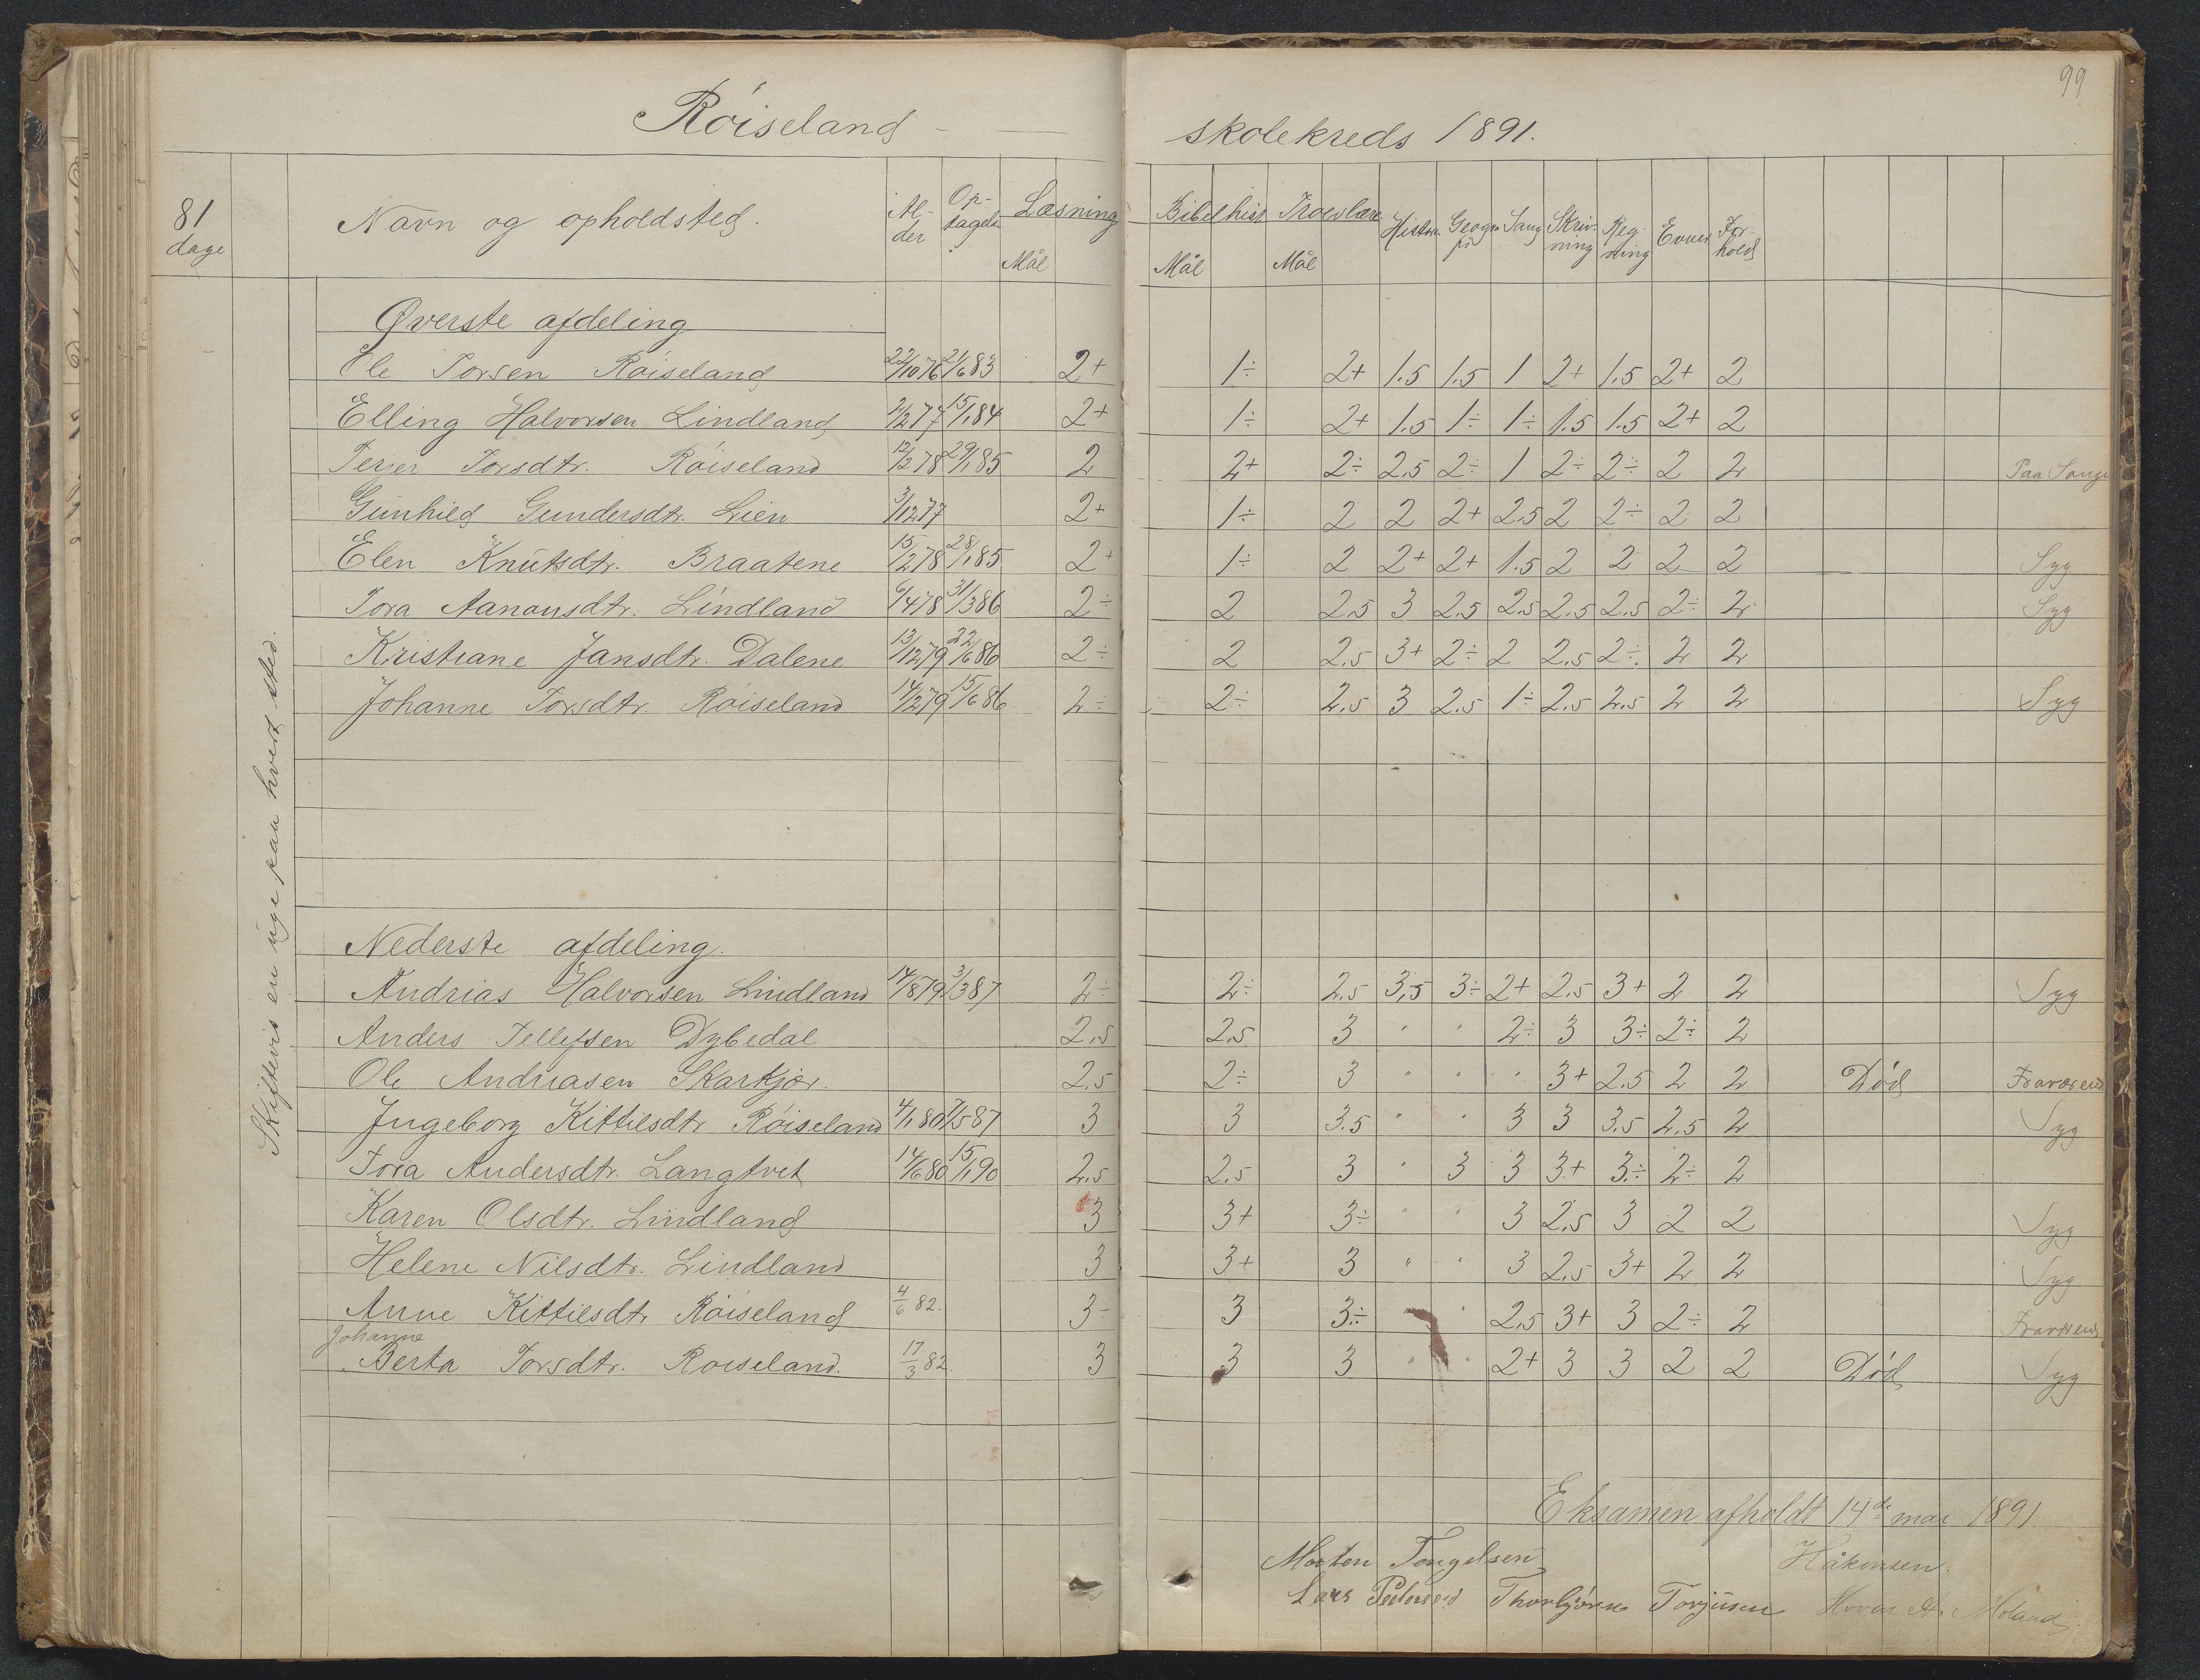 99
Röiseland - skolekreds 1891.
81 dage
Navn og opholdsted. Alder Optagelse Læsning Bibelhist. Troeslære Historie Geografi Sang Skrivning Regning Evner Forhold
Mål Mål Mål
Skiftevis en uge paa hvert sted.
Øverste afdeling
Ole Torsen Röiseland 22/10 76 21/6 83 2+ 1÷ 2+ 1.5 1.5 1 2+ 1.5 2+ 2
Elling Halvorsen Lindland 2/2 77 15/1 84 2+ 1÷ 2+ 1.5 1÷ 1÷ 1.5 1.5 2+ 2
Torsdtr. Röiseland 12/2 78 29/1 85 2 2+ 2÷ 2.5 2÷ 1 2÷ 2÷ 2 2 Paa Sange
Gunhild Gundersdtr. Lien 3/12 77 2+ 1÷ 2 2 2+ 2.5 2 2÷ 2 2
Elen Knutsdtr. Braatene 15/2 78 28/1 85 2+ 1÷ 2 2+ 2+ 1.5 2 2 2 2 Syg
Tora Aanonsdtr. Lindland 6/4 78 31/3 86 2÷ 2 2.5 3 2.5 2.5 2.5 2.5 2÷ 2 Syg
Kristiane Jansdtr. Dalene 13/12 79 22/6 86 2÷ 2 2.5 3+ 2÷ 2 2.5 2÷ 2 2
Johanne Torsdtr. Röiseland 14/2 79 15/6 86 2÷ 2÷ 2.5 3 2.5 1÷ 2.5 2.5 2 2 Syg
Nederste afdeling.
Andrias Halvorsen Lindland 14/8 79 3/3 87 2÷ 2÷ 2.5 3,5 3÷ 2+ 2.5 3+ 2 2 Syg
Anders Tellefsen Dybedal 2,5 2,5 3 " " 2÷ 3 3÷ 2÷ 2
Ole Andriasen Skarkjær. 2,5 2÷ 3 " " " 3+ 2.5 2 2 Död Fraværend
Ingeborg Kittilsdtr. Röiseland 4/1 80 7/5 87 3 3 3.5 " " 3 3 3.5 2.5 2 Syg
Tora Andersdtr. Langtvet 14/6 80 15/1 90 2.5 2.5 3 " 3 3 3+ 3÷ 2÷ 2
Karen Olsdtr. Lindland 3 3+ 3÷ " " 3 2.5 3 2 2 Syg
Helene Nilsdtr. Lindland 3 3+ 3 " " 3 2.5 3+ 2 2 Syg
Anne Kittilsdtr Röiseland 4/6 82. 3÷ 3 3÷ " " 2.5 3+ 3 2÷ 2 Fraværend
Johanne
Berta Torsdtr. Roiseland. 17/3 82 3 3 3 " " 2+ 3 3 2 2 Död Syg
Eksamen afholdt 14de mai 1891
Morten Tengelsen Håkonsen.
Lars Pedersen Thorbjörn Torjusen Hovar A. Moland